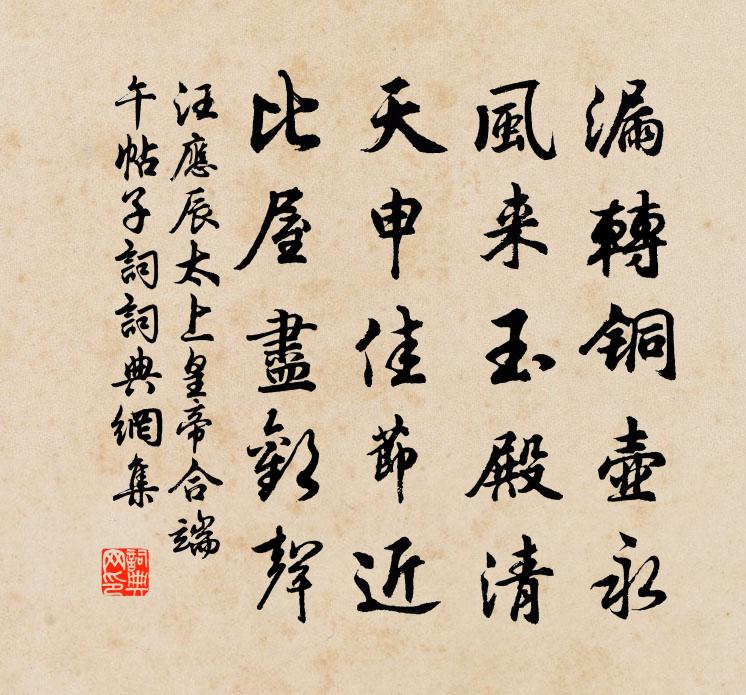 漏轉铜壺永
風来玉殿清
天申佳節近
比屋盡歡聲
汪應辰太上皇帝合端
午帖子詞詞典網集
詞典网印